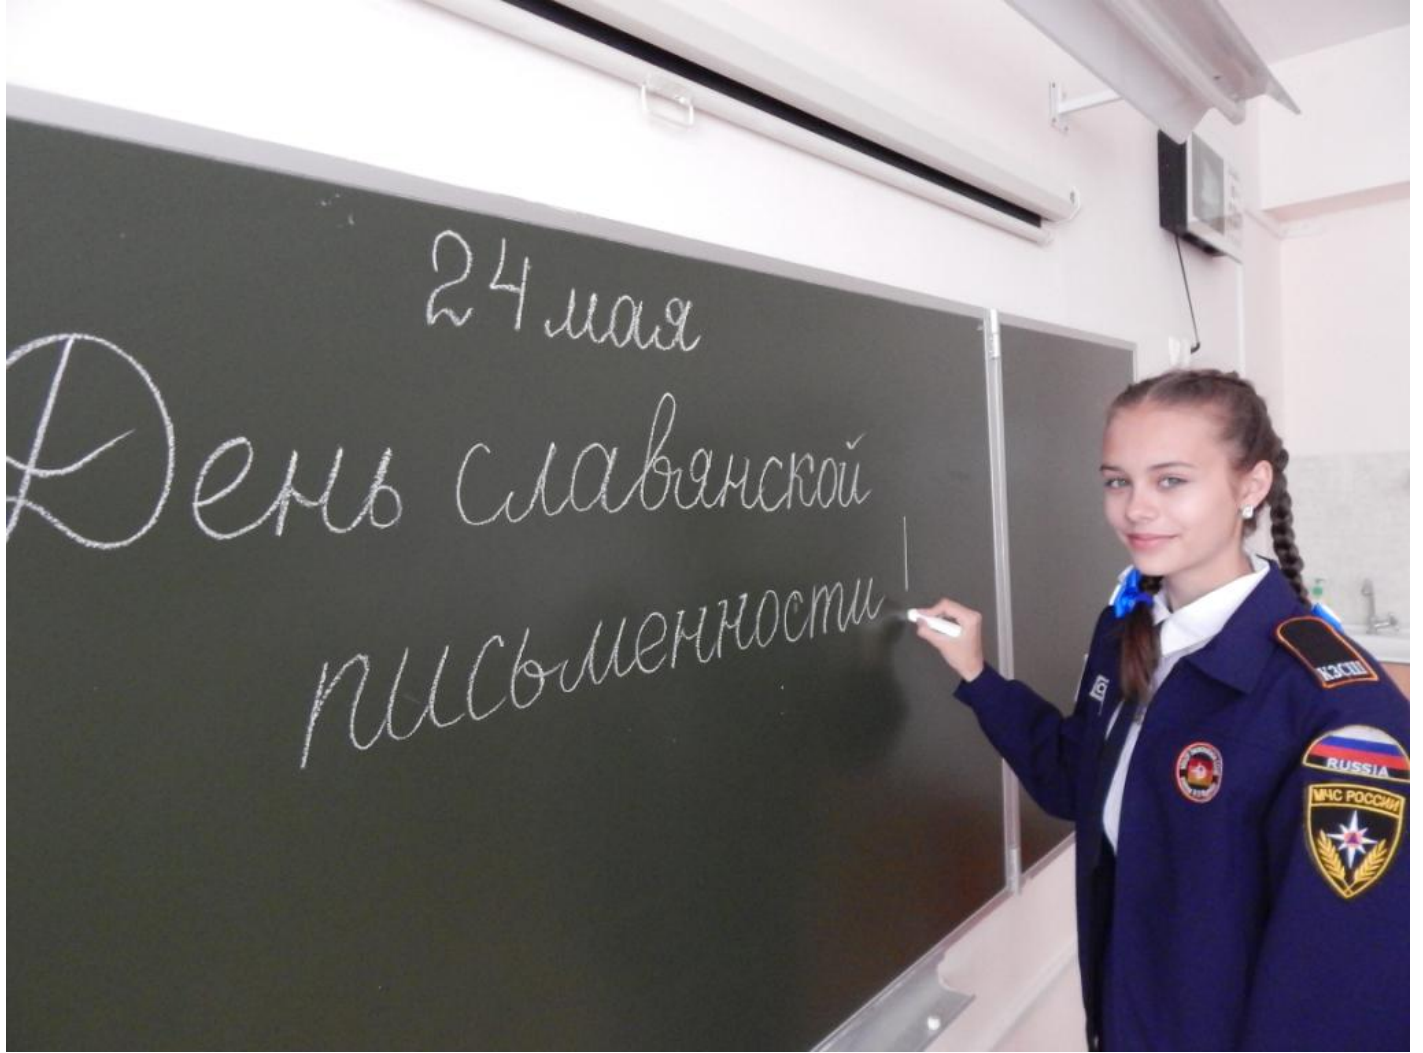 24 мая
День славянской
письменности!
КЗСШ
RUSSIA
МЧС РОССИИ